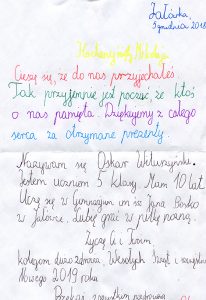 Załarka,
5 grudnia 2018
Kochany św. Mikołaju
Cieszę się, że do nas przyjechałeś.
Tak przyjemnie jest poczuć, że ktoś
o nas pamięta. Dziękujemy z całego
serca za otrzymane prezenty.
Nazywam się Oskar
Jestem uczniem 5 klasy. Mam 10 lat.
Uczę się w Gimnazjum im św Jana Bosko
w Jałowce. Lubię grać w piłkę nożną.
Życzę Ci i Twoim
kolegom dużo zdrowia, Wesołych Świąt i szczęśliwego
Nowego 2019 roku
wszystkim